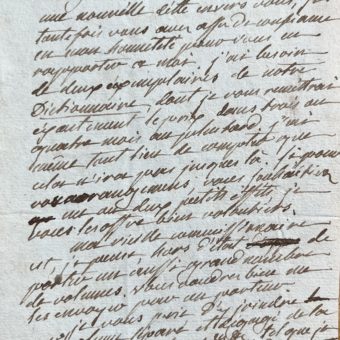 une nouvelle dette envers vous, si
toutefois vous avez assez de confiance
en mon honnêteté pour vous en
rapporter à moi. j'ai besoin
de deux exemplaires de votre
Dictionnaire, dont je vous remettrai
également le prix dans trois ou
quatre mois au plus tard. j'ai
même tout lieu de compter que
cela n'ira pas jusques là. si pour
vos arrangemens, vous souhaitiez
un ou deux petits effets, je
vous les offre bien volontiers.
ma vieille commissionnaire
est, je pense, hors d'état de
porter un aussi grand nombre
de volumes, vous voudrez bien me
les envoyer par un porteur.
je vous prie d'y joindre
et la
que je